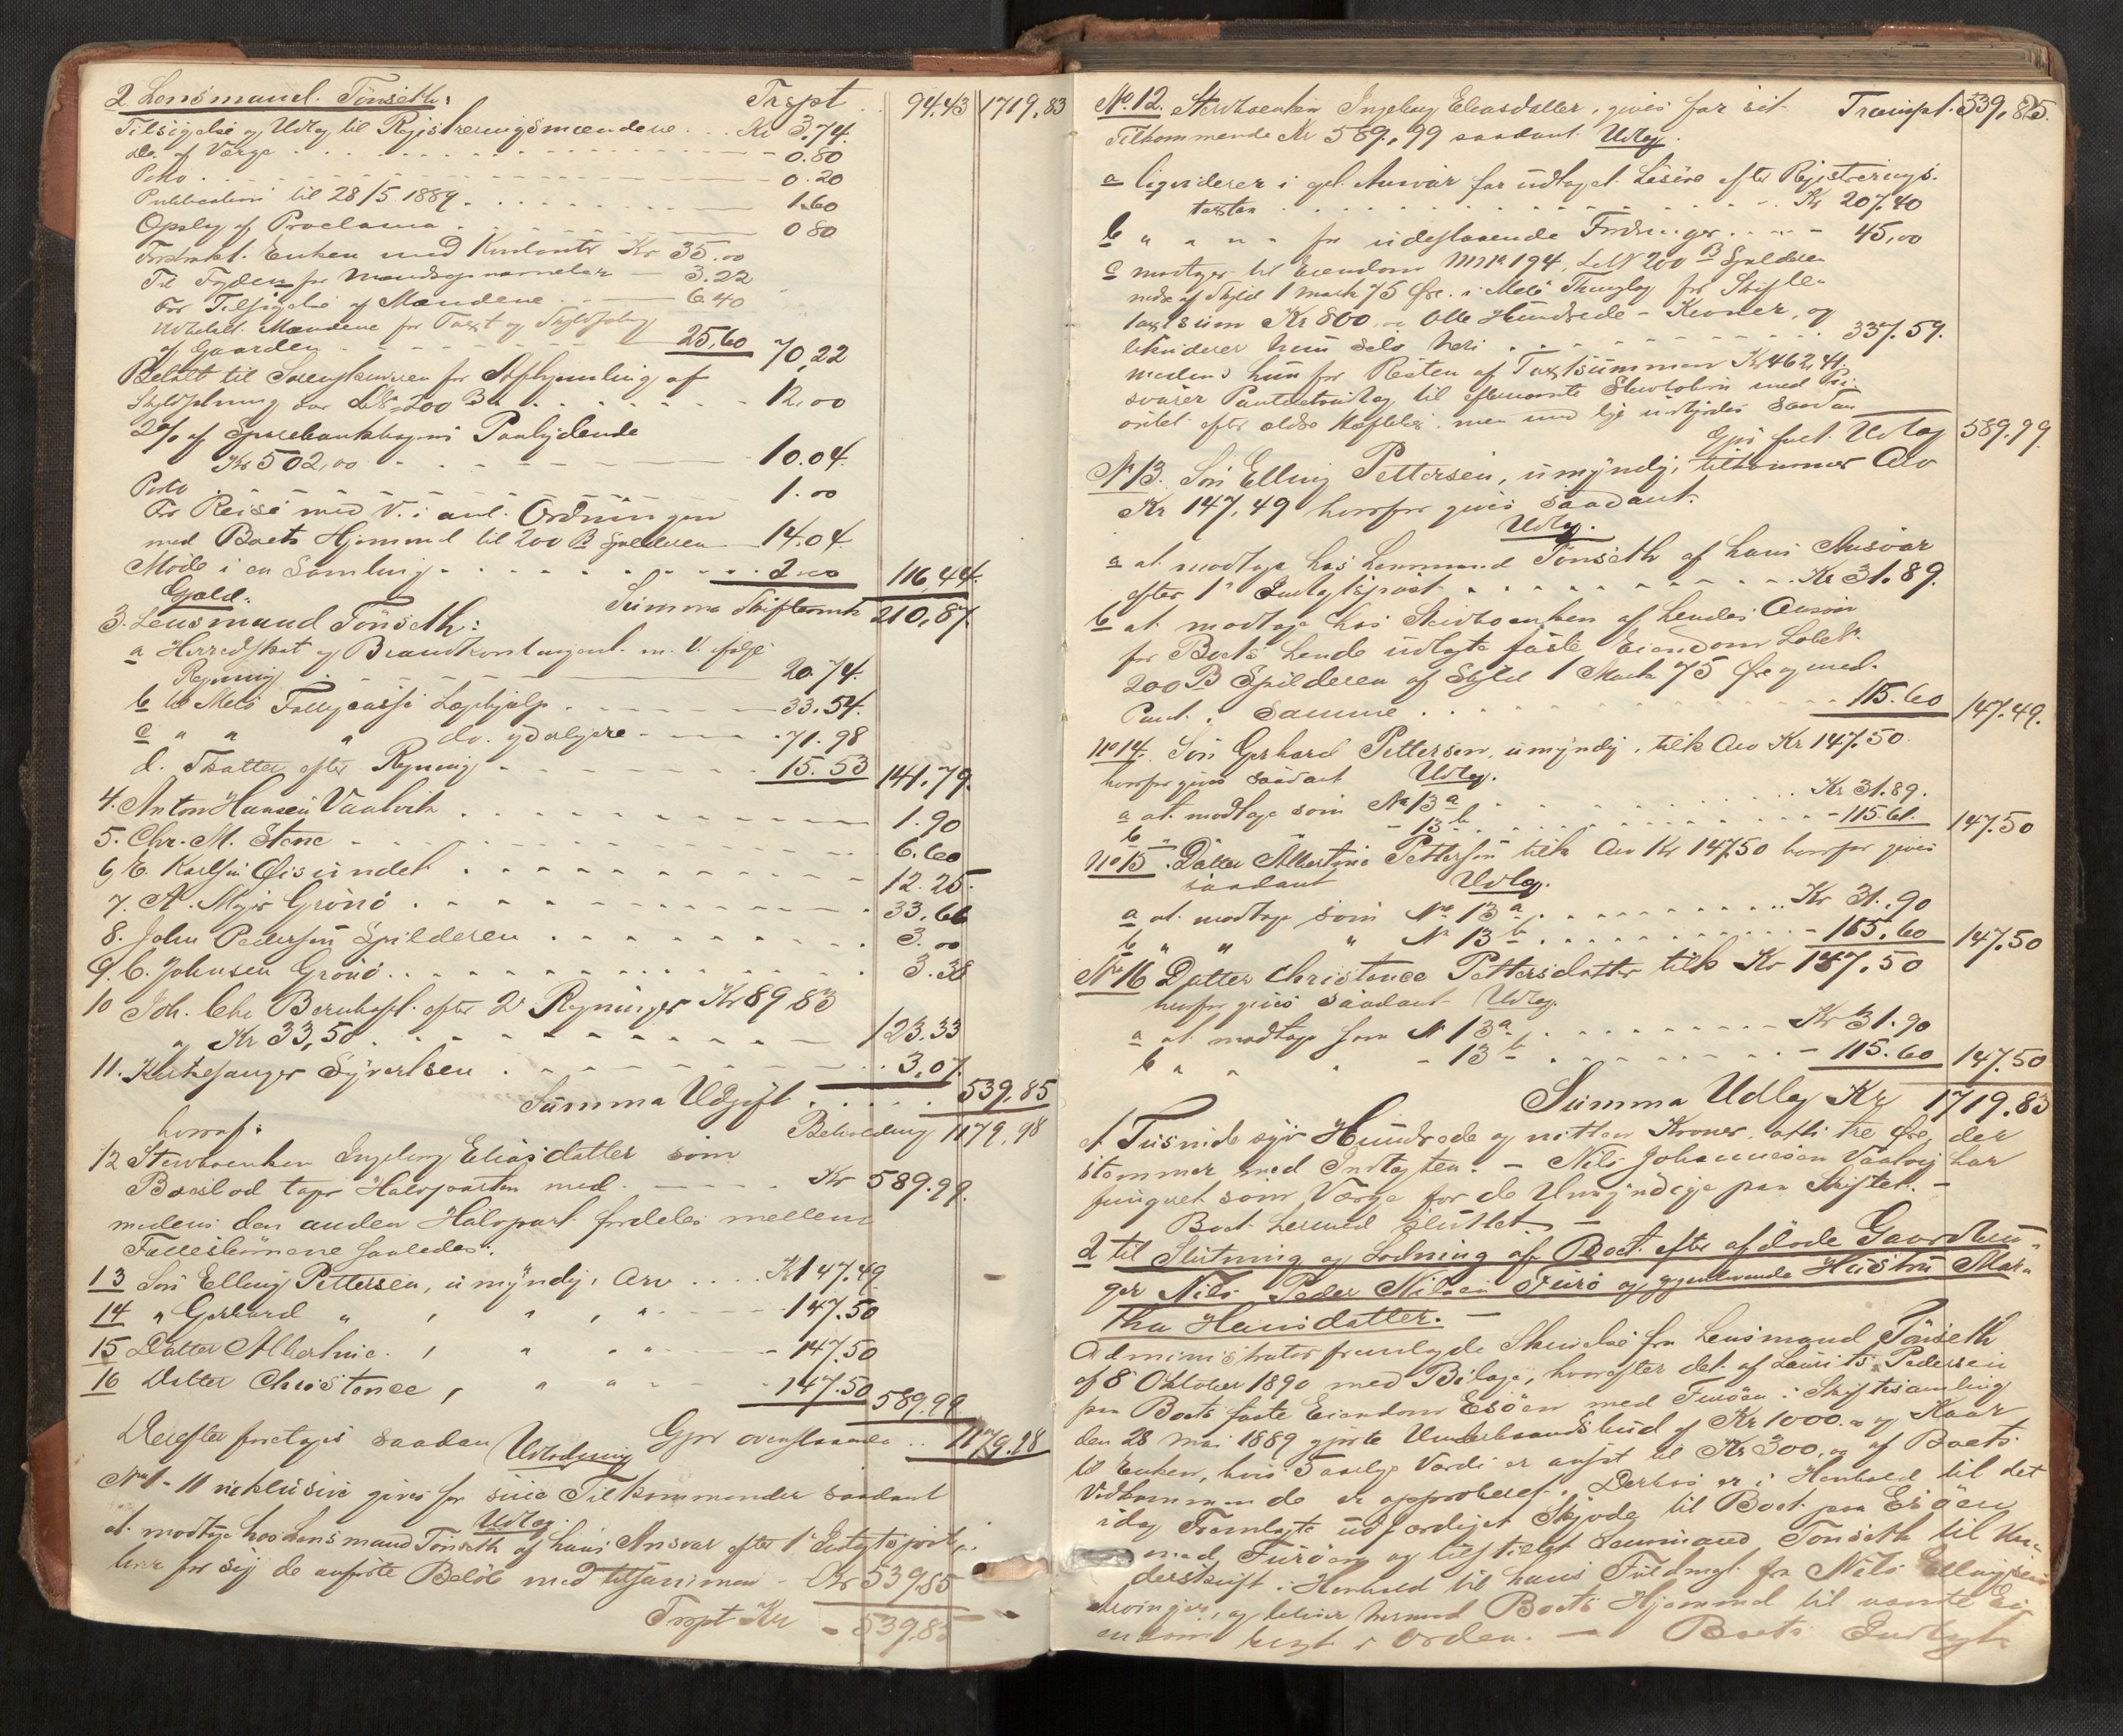 2 Lensmand Tönseth: Trspt 94.43 1719,83
Tilsigelse og Udlæg til Rejstreringsmændene . . . Kr 3,74
do. af Værge . . . 0.80
Porto . . . 0.20
Publication til 28/5 1889 . . . 1.60
Opslag af Proclama . . . 0 80
Enken med Kontante Kr 35.00
Til Fogden for Mandsopnævnelse — 3.22
For Tilsigelse af Mændene — 6.40
Udbetalt Mændene for Taxt og
af Gaarden . . . 25,60 70,22
Betalt til Sorenskriveren for af
Skyldskning over LNo 200 B . . . 12,00
2% af Sparebankbogens Paalydende
Kr 502,00 . . . 10.04
Porto . . . 1.00
For Reise med V. i anl. Ordningen
med Boets Hjemmel til 200 B Spilderen 14.04
Möde i en Samling . . . 2.00 116,44.
Gæld: Summa Skifteomk 210,87
3. Lensmand Tönseth:
a Herredskat og Brandkontingent m. V. ifölge
Regning . . . 20.74.
b til Melö Fattigcasse Lægehjælp . . . 33.54.
c " " " do. ydeligere . . . 71.98
d. Skatter efter Regning . . . 15.53 141,79.
4. Anton Hansen Vaatvik . . . 1.90
5. Chr. M. Stene . . . 6.60
6, E. Karlsen Öisundet . . . 12.25.
7. A. Mejer Grönö . . . 33,66
8. John Pedersen Spilderen . . . 3.00
9. C. Johnsen Grönö . . . 3.38
10 Joh. Chr Bernhoft efter 2 Regninger Kr 89,83
og Kr 33,50 . . . 123.33
11. Kirkesanger Syvertsen . . . 3,07.
Summa Udgift . . . 539,85
hvoraf: Beholdning 1179,98
12 Stervboenken Ingeborg Eliasdatter som
Boeslod tager Halvparten med . . . Kr 589.99.
medens den anden Halvpart fordeles mellem
Fællesbörnene saaledes:
13 Sön Elling Pettersen, umyndig, Arv . . . Kr 147.49
14 " Gerhard " , " , " . . . 147.50
15 Datter Albertine , " " . . . 147.50
16 Datter Christence , " " . . . 147.50 589.99
Gjör ovenstaaende . . 1179.98
Derefter foretages saadan Udlodning
No 1-11 inklusive gives for sine Tilkommender saadant
Udlæg.
at modtage hos Lensmand Tönseth af hans Ansvar efter 1ste Indtægtspost
hver for sig de anförte Belöb med tilsammen - Kr 539,85
Trspt Kr - 539,85
No 12. Stervboenken Ingeborg Eliasdatter, gives for sit Transpt. 539,85.
Tilkommende Kr 589,99 saadant Udlæg.
a liqviderer i gel. Ansvar for udtaget Lösöre efter Rejstrerings-
taxten . . . Kr 207.40
b " " " " for udestaaende Fordringer . . . 45,00
c modtager til Eiendom MNr 194, LNr 200 B Spilderen
nedre af Skyld 1 Mark 75 Öre i Melö Thinglag for Skifte-
taxtsum Kr 800,00 Otte Hundrede - Kroner, og
likviderer hun selv heri . . . 337.59.
medens hun for Resten af Taxtsummen Kr 462,41
svarer Panteudlæg til efternævnte Stervbobörn med Pri-
oritet efter ældre Hæftelser,
Gjör fuldt Udlæg 589.99
No 13. Sön Elling Pettersen, umyndig, tilkommer Arv
Kr 147,49 hvorfor gives saadant
Udlæg.
a at modtage hos Lensmand Tönseth af hans Ansvar
efter 1ste Indtægtspost . . . Kr 31.89.
b at modtage hos Stervboenken af hendes Ansvar
for Boets hende udlagte faste Eiendom LöbeNr
200 B Spilderen af Skyld 1 Mark 75 Öre og med
Pant i Samme . . . 115.60 147.49.
No 14. Sön Gerhard Pettersen, umyndig, tilk Arv Kr 147.50
hvorfor gives saadant Udlæg.
a at modtage som No 13 a . . . Kr 31.89.
b " - 13 b . . . - 115.61. 147.50
No 15. Datter Albertine Pettersen tilk Arv Kr 147.50 hvorfor gives
saadant Udlæg.
a at modtage som No 13 a . . . Kr 31.90
b " " " No 13 b . . . - 115.60 147.50
No 16 Datter Christence Pettersdatter tilk Kr 147,50
hvorfor gives saadant Udlæg.
a at modtage som No 13 a . . . Kr 31.90
b " " - 13 b . . . - 115.60 147.50
Summa Udlæg Kr 1719.83
et Tusinde syv Hundrede og nitten Kroner, otti tre Öre, der
stemmer med Indtægten. - Nils Johannesen Vaatvig har
fungeret som Værge for de Umyndige paa Skiftet. -
Boet hermed sluttet -
2 til Slutning og Lodning af Boet efter afdöde Gaardbru-
ger Nils Peder Nilsen Furö og gjenlevende Hustru Mar-
tha Hansdatter. -
Administrator fremlagde Skrivelse fra Lensmand Tönseth
af 8 Oktober 1890 med Bilage, hvorefter det af Laurits Pedersen
paa Boets faste Eiendom Esöen med Furöen i Skiftesamling
den 28 Mai 1889 gjorte Underhaandsbud af Kr 1000.00 og Kaar
til Enken, hvis 5 aarlige Værdi er ansat til Kr 300,00 af Boets
Vedkommende er approberet. Derhos er i Henhold til det
idag Fremlagte udfærdiget Skjöde til Boet paa Esöen
med Furöen og tilstillet Lensmand Tönseth til Un-
derskrift i Henhold til hans Fuldmgt. fra Nils Ellingsen
og bliver hermed Boets Hjemmel til nævnte Ei-
endom bragt i Orden. - Boets Indtægt